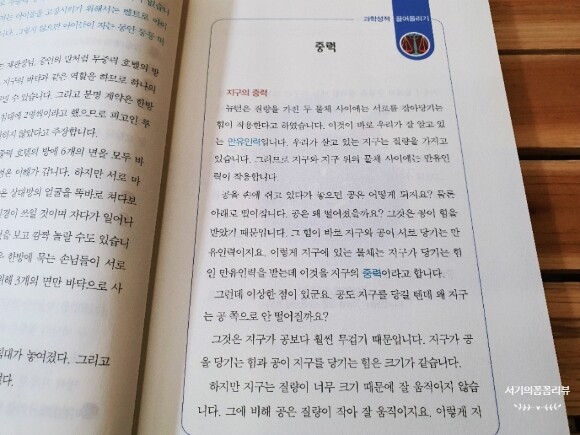 고정시키기 위해서는 벨트로 아이
그렇지 않으면 아이들이 자는 동안 둥둥 떠
재판장님, 증인의 말처럼 무중력 호텔의 방
지구의 바닥과 같은 역할을 하므로 하나의
있습니다. 그리고 분명 계약은 한방
침대에 2명씩이라고 했으므로 피고인 투
않았다고 주장합니다.
호텔의 방에 6개의 면을 모두 바
이해가 갑니다. 하지만 서로 마
상대방의 얼굴을 똑바로 쳐다보
쓰일 것이며 자다가 일어나
을 보고 깜짝 놀랄 수도 있습니
은 한방에 묵는 손님들이 서로
위해 3개의 면만 바닥으로 사
침대가 놓여졌다. 그리고
과학성적 끌어올리기
중력
지구의 중력
뉴턴은 질량을 가진 두 물체 사이에는 서로를 끌어당기는
힘이 작용한다고 하였습니다. 이것이 바로 우리가 잘 알고 있
는 만유인력입니다. 우리가 살고 있는 지구는 질량을 가지고
있습니다. 그러므로 지구와 지구 위의 물체 사이에는 만유인
력이 작용합니다.
공을 손에 쥐고 있다가 놓으면 공은 어떻게 되지요? 물론
아래로 떨어집니다. 공은 왜 떨어졌을까요? 그것은 공이 힘을
받았기 때문입니다. 그 힘이 바로 지구와 공이 서로 당기는 만
유인력이지요. 이렇게 지구에 있는 물체는 지구가 당기는 힘
인 만유인력을 받는데 이것을 지구의 중력이라고 합니다.
그런데 이상한 점이 있군요. 공도 지구를 당길 텐데 왜 지구
는 공 쪽으로 안 떨어질까요?
그것은 지구가 공보다 훨씬 무겁기 때문입니다. 지구가 공
을 당기는 힘과 공이 지구를 당기는 힘은 크기가 같습니다.
하지만 지구는 질량이 너무 크기 때문에 잘 움직이지 않습
니다. 그에 비해 공은 질량이 작아 잘 움직이지요. 이렇게 지
서기의꼼꼼리뷰